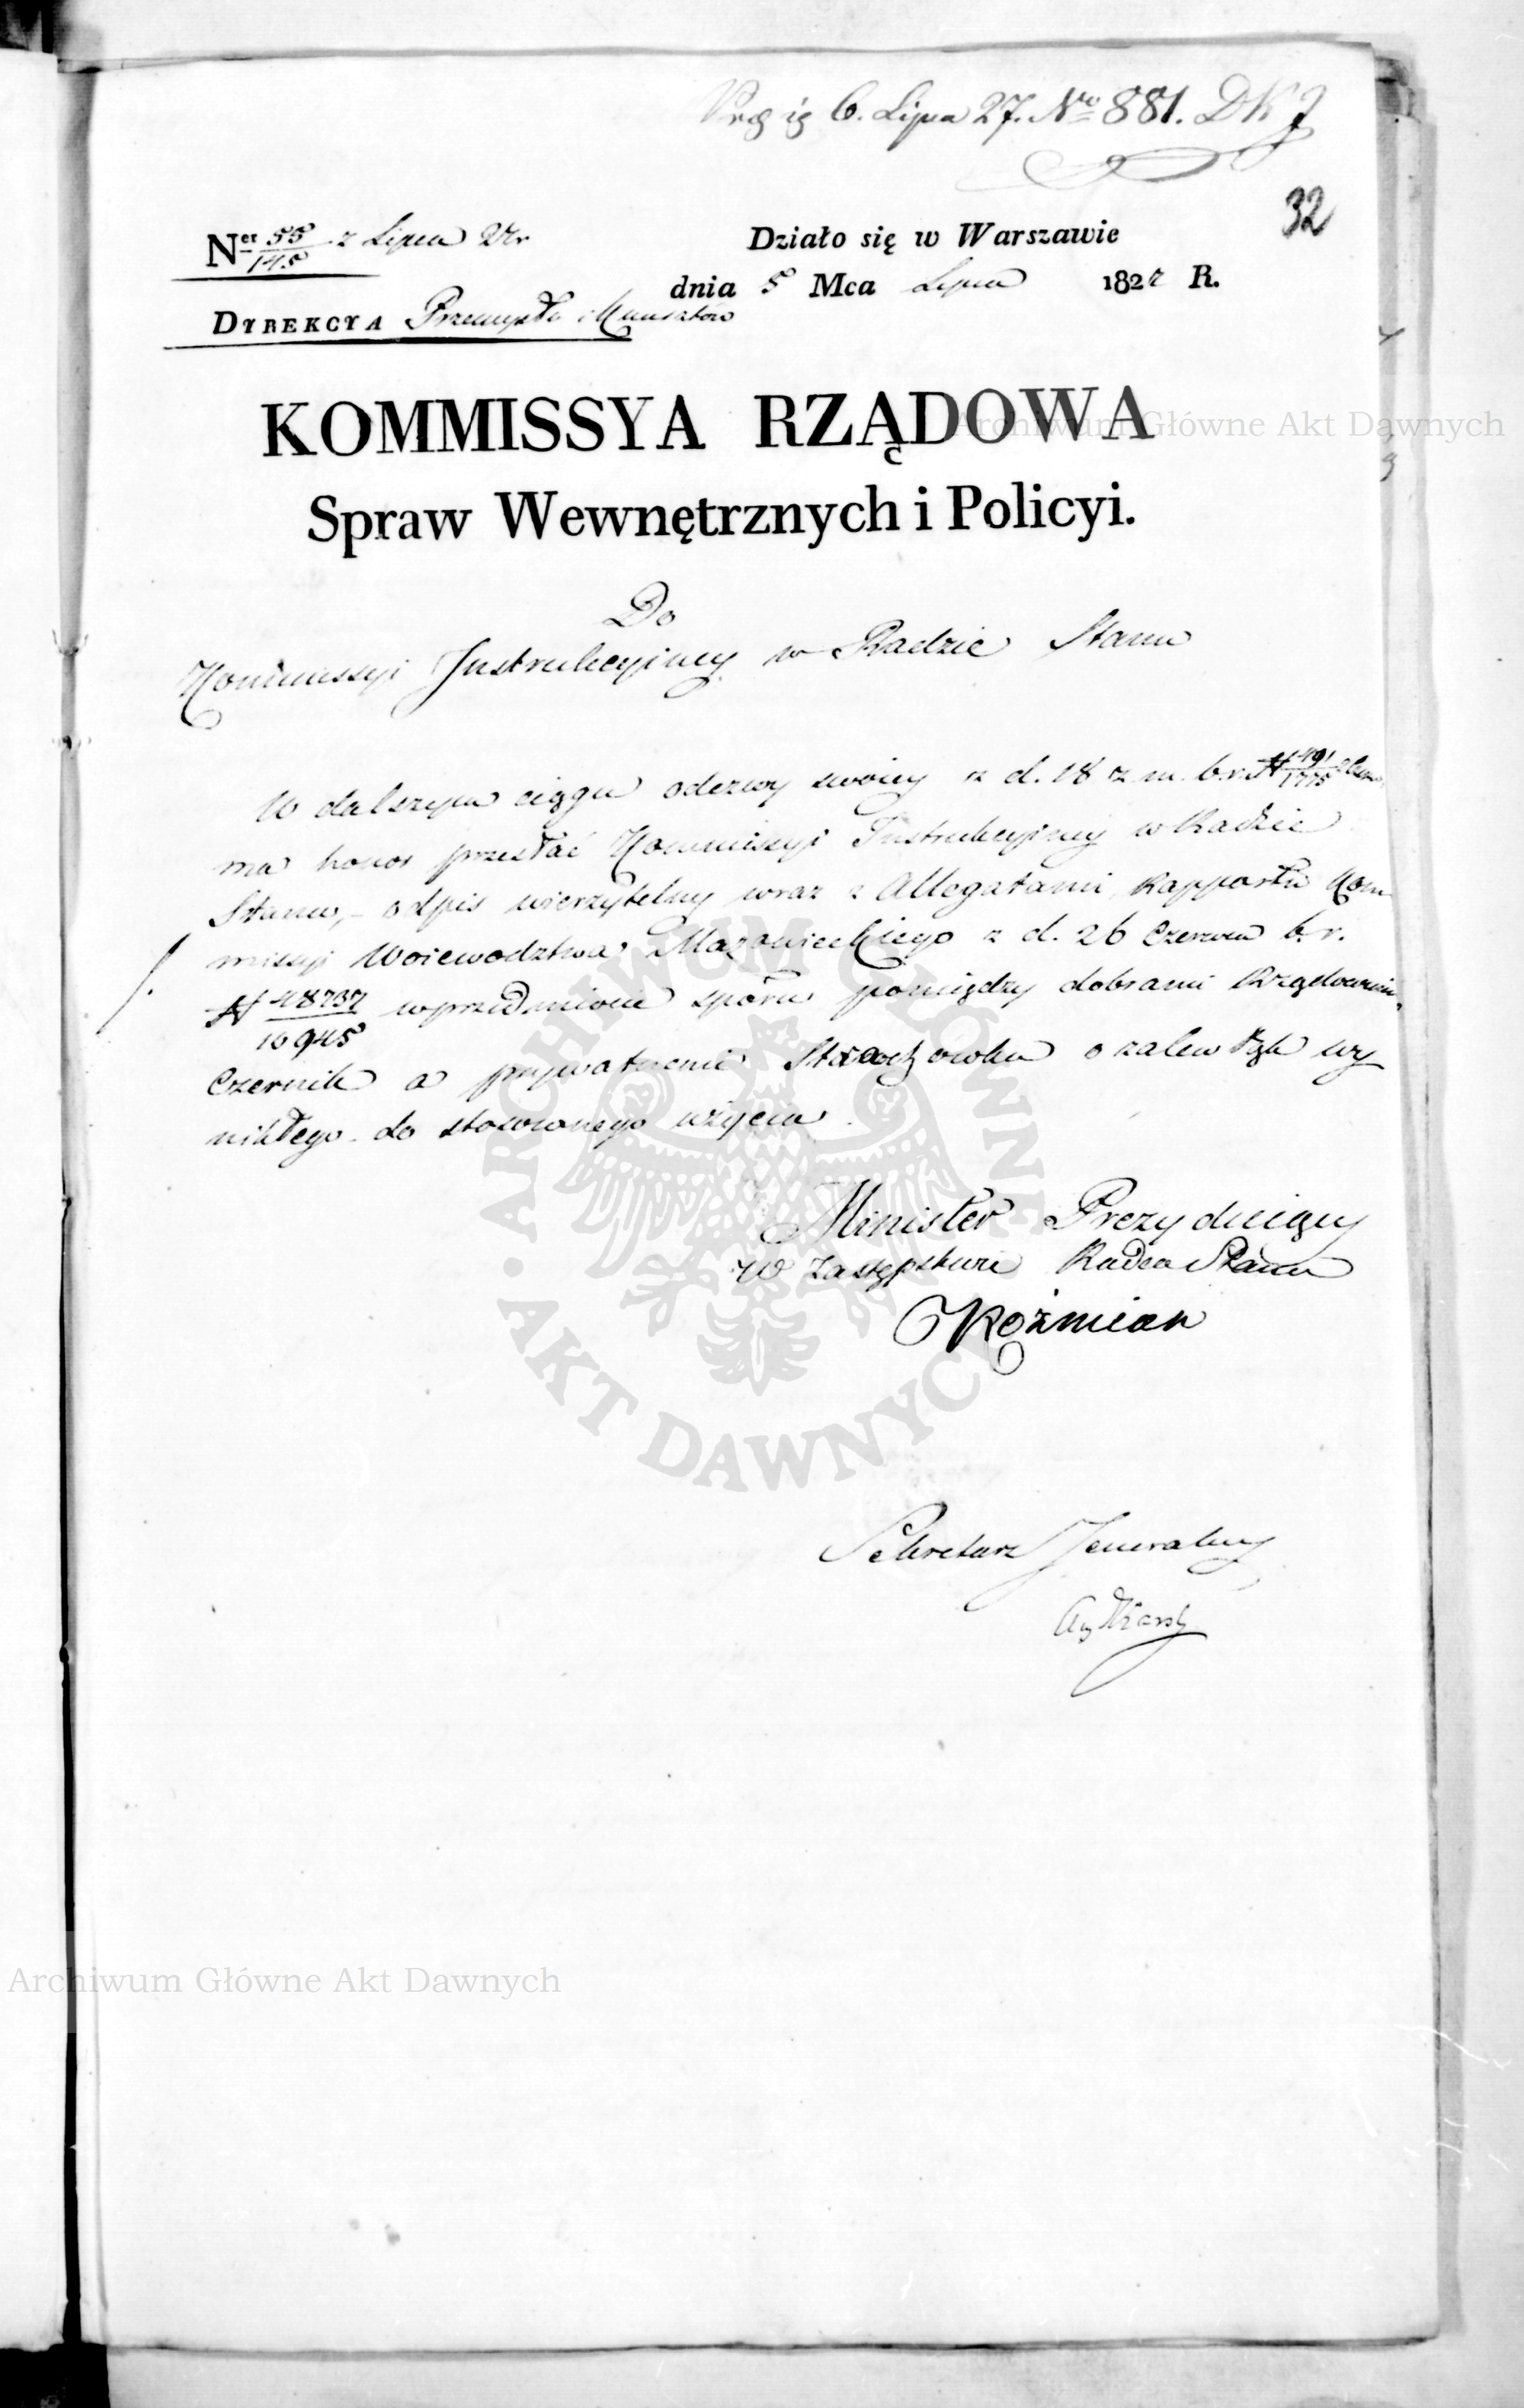 6. Lipca 27. No 881. DKJ
32
Ner 55/145 z Lipca 27r
Działo się w Warszawie
dnia 5 Mca Lipca 1827 R.
DYREKCYA Przemysłu i Kunsztów
KOMMISSYA RZĄDOWA
Spraw Wewnętrznych i Policyi.
Do
Kommissyi Instrukcyiney w Radzie Stanu
W dalszym ciągu odezwy swoiey z d. 18 z. m. b.r. N 491/1775
ma honor przesłać Kommissyi Instrukcyiney w Radzie
Stanu, - odpis wierzytelny wraz z Allegatami Rapportu Kom
missyi Woiewodztwa Mazowieckiego z d. 26 Czerwca b.r.
N 48737/10945 w przedmiocie sporu pomiędzy dobrami Rządowemi
Czernik a prywatnemi Strachowka o zalew łąk wy
nikłego do stosownego użycia.
Minister Prezyduiący
W Zastępstwie Radca Stanu
Koźmian
Sekretarz Jeneralny
Archiwum Główne Akt Dawnych
Archiwum Główne Akt Dawnych
ARCHIWUM GŁÓWNE AKT DAWNYCH